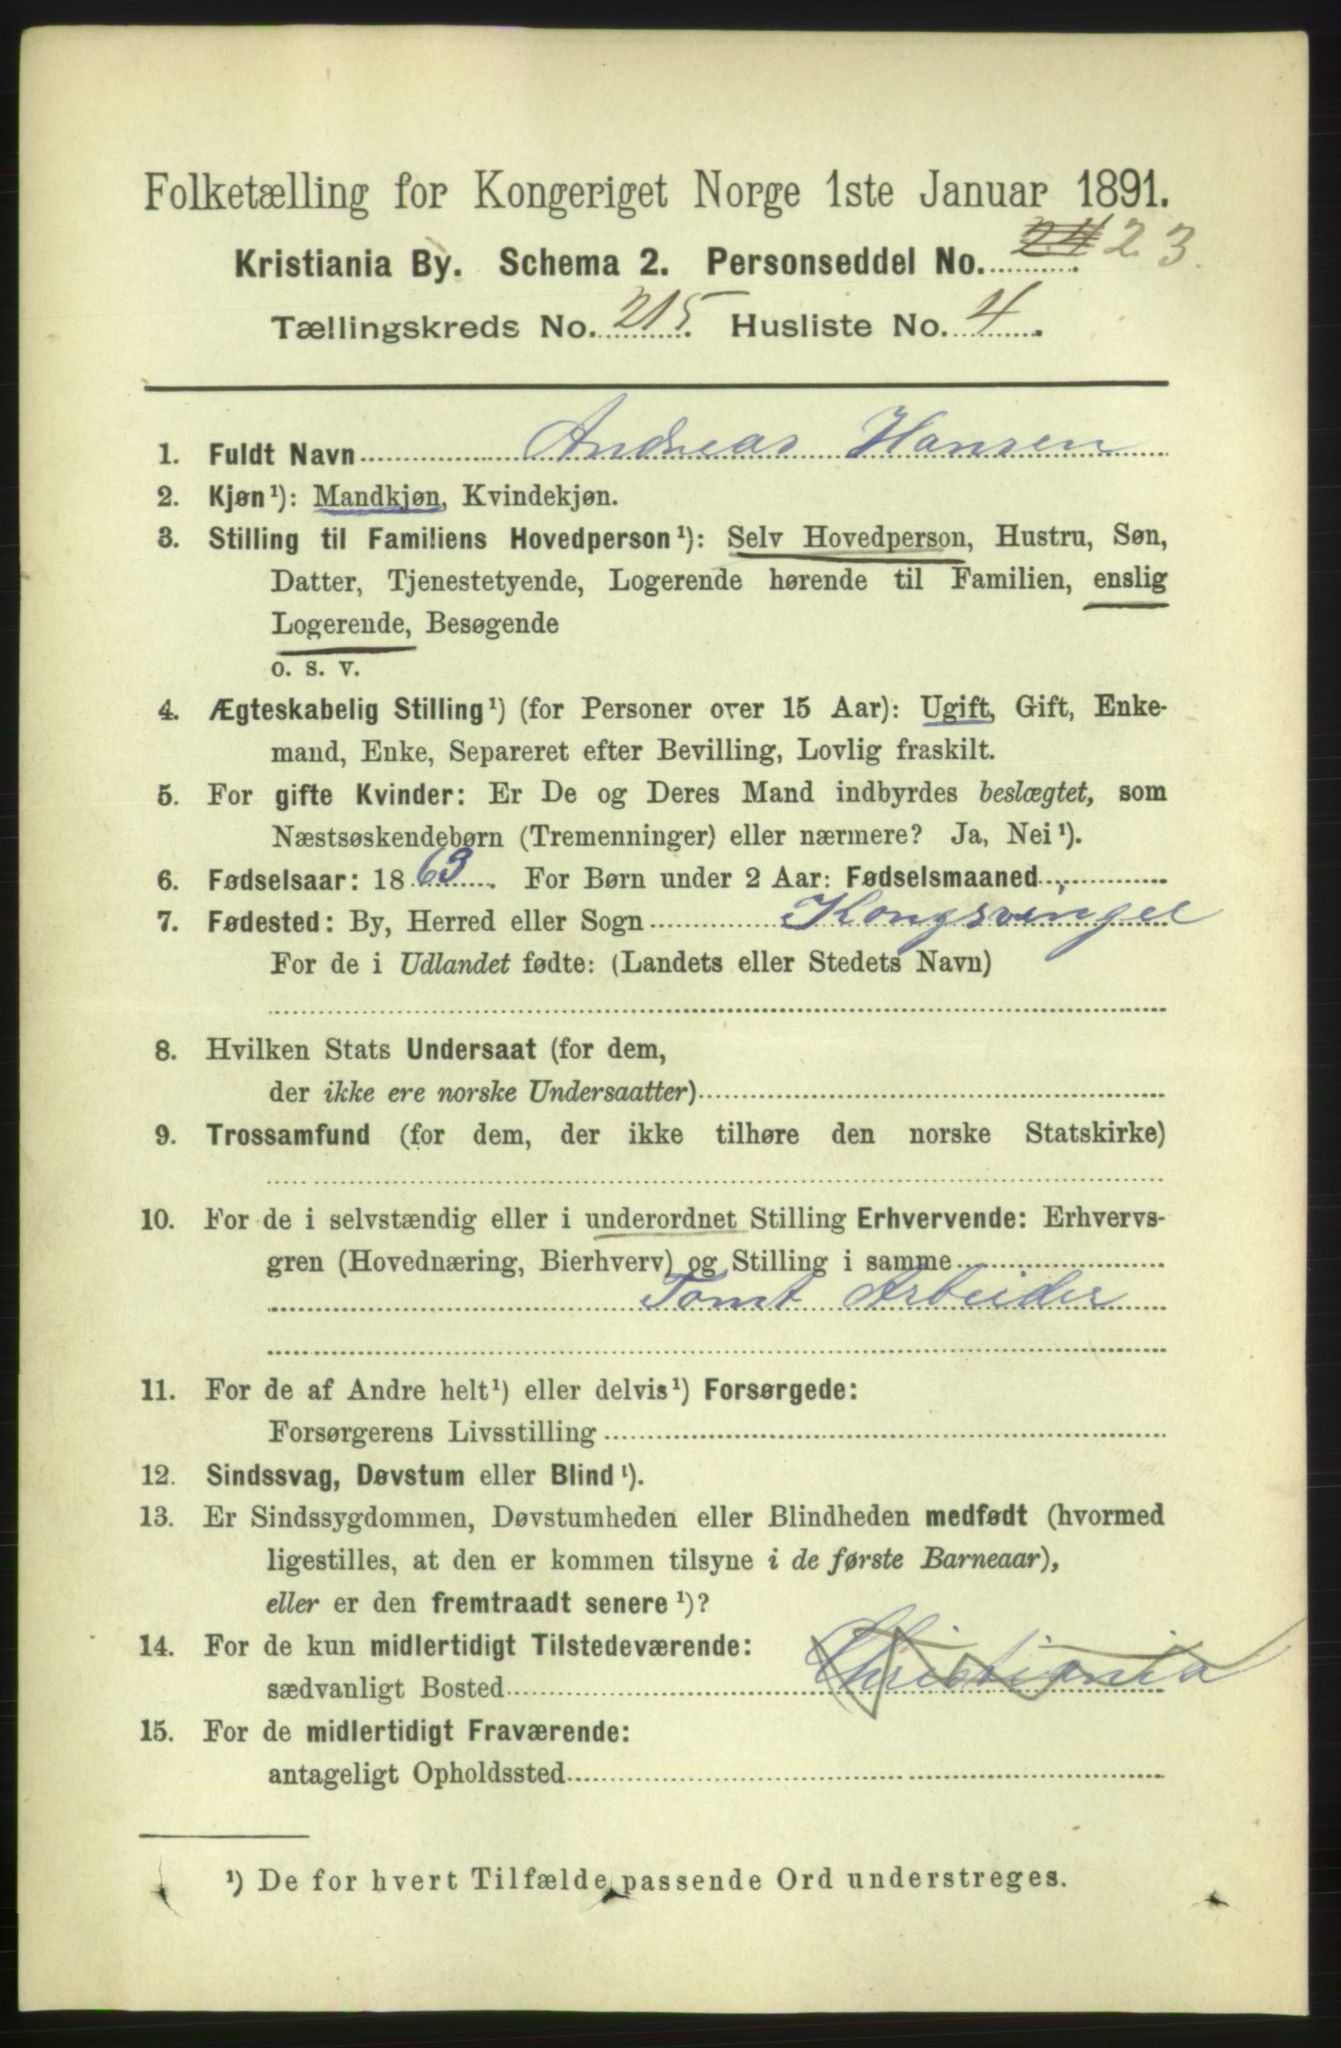 Folketælling for Kongeriget Norge 1ste Januar 1891.
Kristiania By. Schema 2. Personseddel No. 24 23
Tællingskreds No. 215. Husliste No. 4.
1. Fuldt Navn Andreas Hansen
2. Kjøn¹): Mandkjøn, Kvindekjøn.
3. Stilling til Familiens Hovedperson¹): Selv Hovedperson, Hustru, Søn,
Datter, Tjenestetyende, Logerende hørende til Familien, enslig
Logerende, Besøgende
o. s. v.
4. Ægteskabelig Stilling¹) (for Personer over 15 Aar): Ugift, Gift, Enke-
mand, Enke, Separeret efter Bevilling, Lovlig fraskilt.
5. For gifte Kvinder: Er De og Deres Mand indbyrdes beslægtet, som
Næstsøskendebørn (Tremenninger) eller nærmere? Ja, Nei¹).
6. Fødselsaar: 1863. For Børn under 2 Aar: Fødselsmaaned
7. Fødested: By, Herred eller Sogn Kongsvinger
For de i Udlandet fødte: (Landets eller Stedets Navn)
8. Hvilken Stats Undersaat (for dem,
der ikke ere norske Undersaatter)
9. Trossamfund (for dem, der ikke tilhøre den norske Statskirke)
10. For de i selvstændig eller i underordnet Stilling Erhvervende: Erhvervs-
gren (Hovednæring, Bierhverv) og Stilling i samme
Tomt Arbeider
11. For de af Andre helt¹) eller delvis¹) Forsørgede:
Forsørgerens Livsstilling
12. Sindssvag, Døvstum eller Blind¹).
13. Er Sindssygdommen, Døvstumheden eller Blindheden medfødt (hvormed
ligestilles, at den er kommen tilsyne i de første Barneaar),
eller er den fremtraadt senere¹)?
14. For de kun midlertidigt Tilstedeværende:
sædvanligt Bosted Christiania
15. For de midlertidigt Fraværende:
antageligt Opholdssted
¹) De for hvert Tilfælde passende Ord understreges.